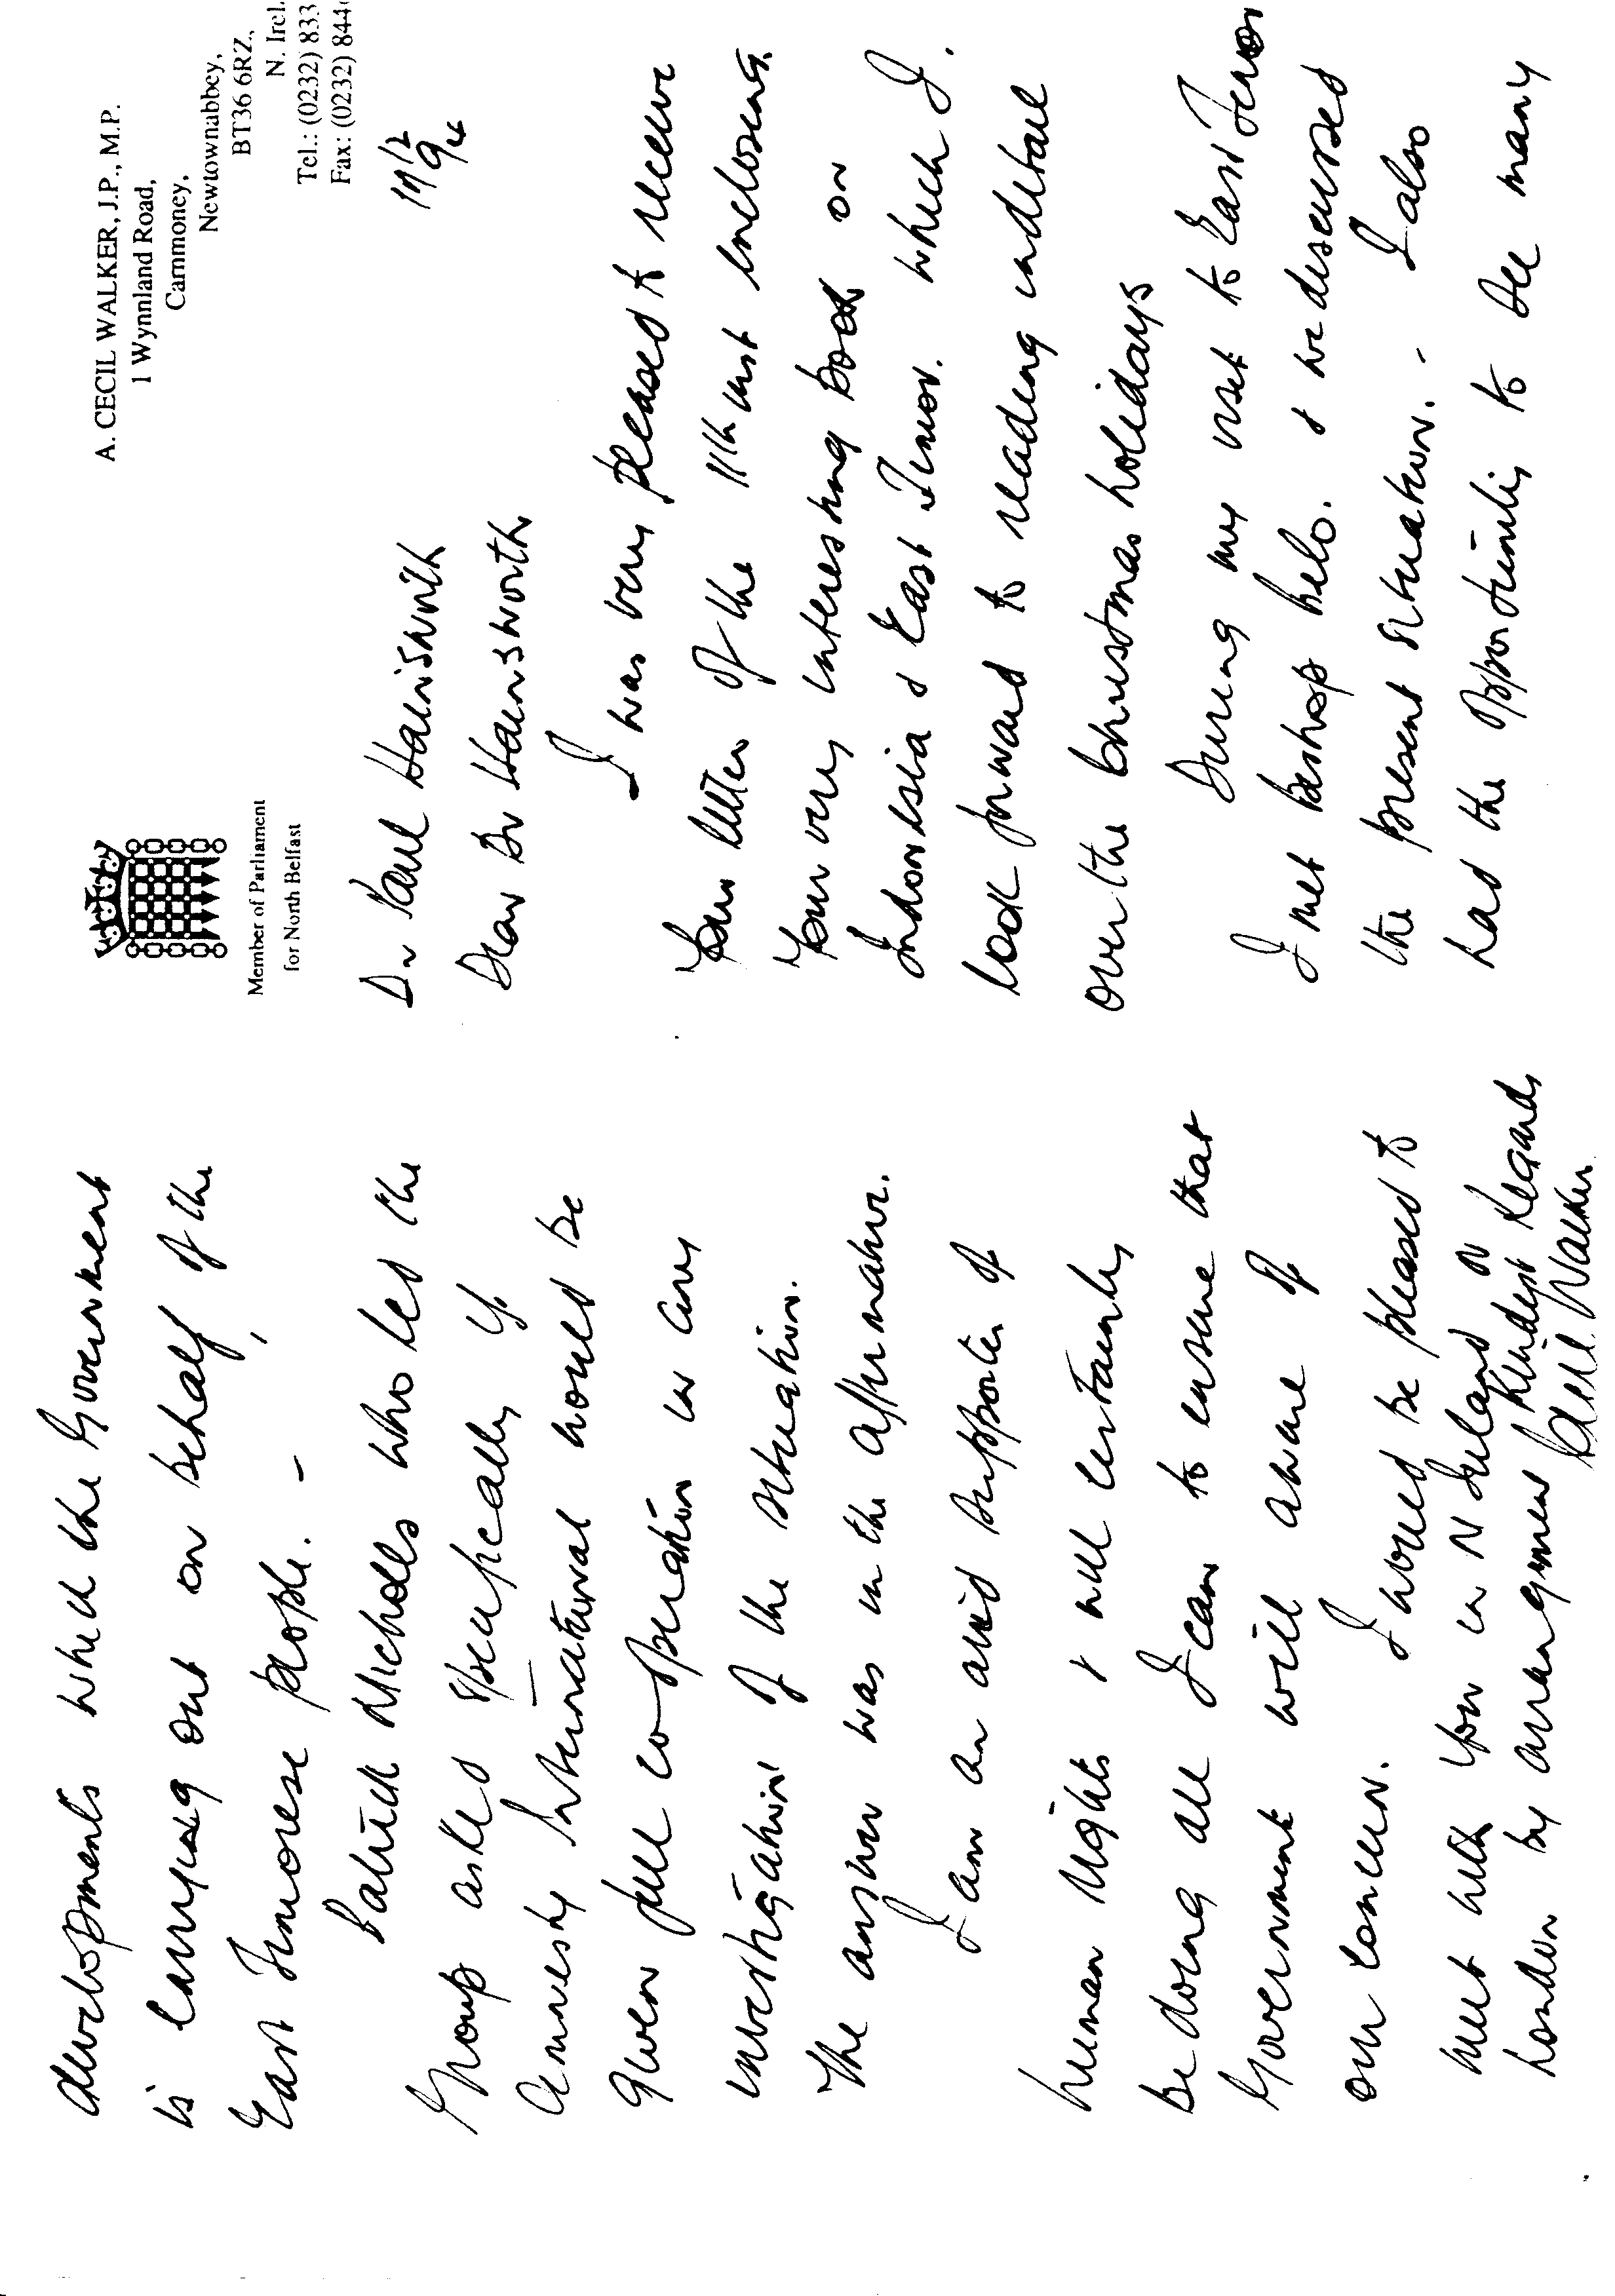 Member of Parliament
for North Belfast
A. CECIL WALKER, J.P., M.P.
1 Wynnland Road,
Carnmoney,
Newtownabbey,
BT36 6RZ,
N. Irel.
Tel.: (0232) 833
Fax: (0232) 844
Dr Paul Hainsworth
Dear Dr Hainsworth
I was very pleased to receive
Your letter of the 11th inst enclosing
Your very interesting book on
Indonesia & East Timor. which I.
look forward to reading
over the Christmas holidays
During my visit to East Timor
I met Bishop Belo. & we discussed
the present situation. - I also
had the opportunity to see many
developments which the Government
is carrying out on behalf of the
East Timorese people. -
Patrick Nicholls who led the
Group asked specifically if
Amnesty International would be
given full co-operation in any
investigation of the situation.
The answer was in the affirmative.
I am an avid supporter of
human rights & will certainly
be doing all I can to ensure that
Government will aware of
our concern. I would be pleased to
meet with you in N Ireland or
London by arrangement Kindest Regards
Cecil Walker